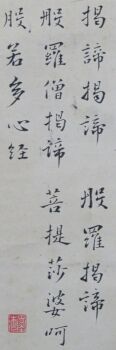 揭諦揭諦　般羅揭諦
般羅僧揭諦　菩提莎婆呵
般若多心経